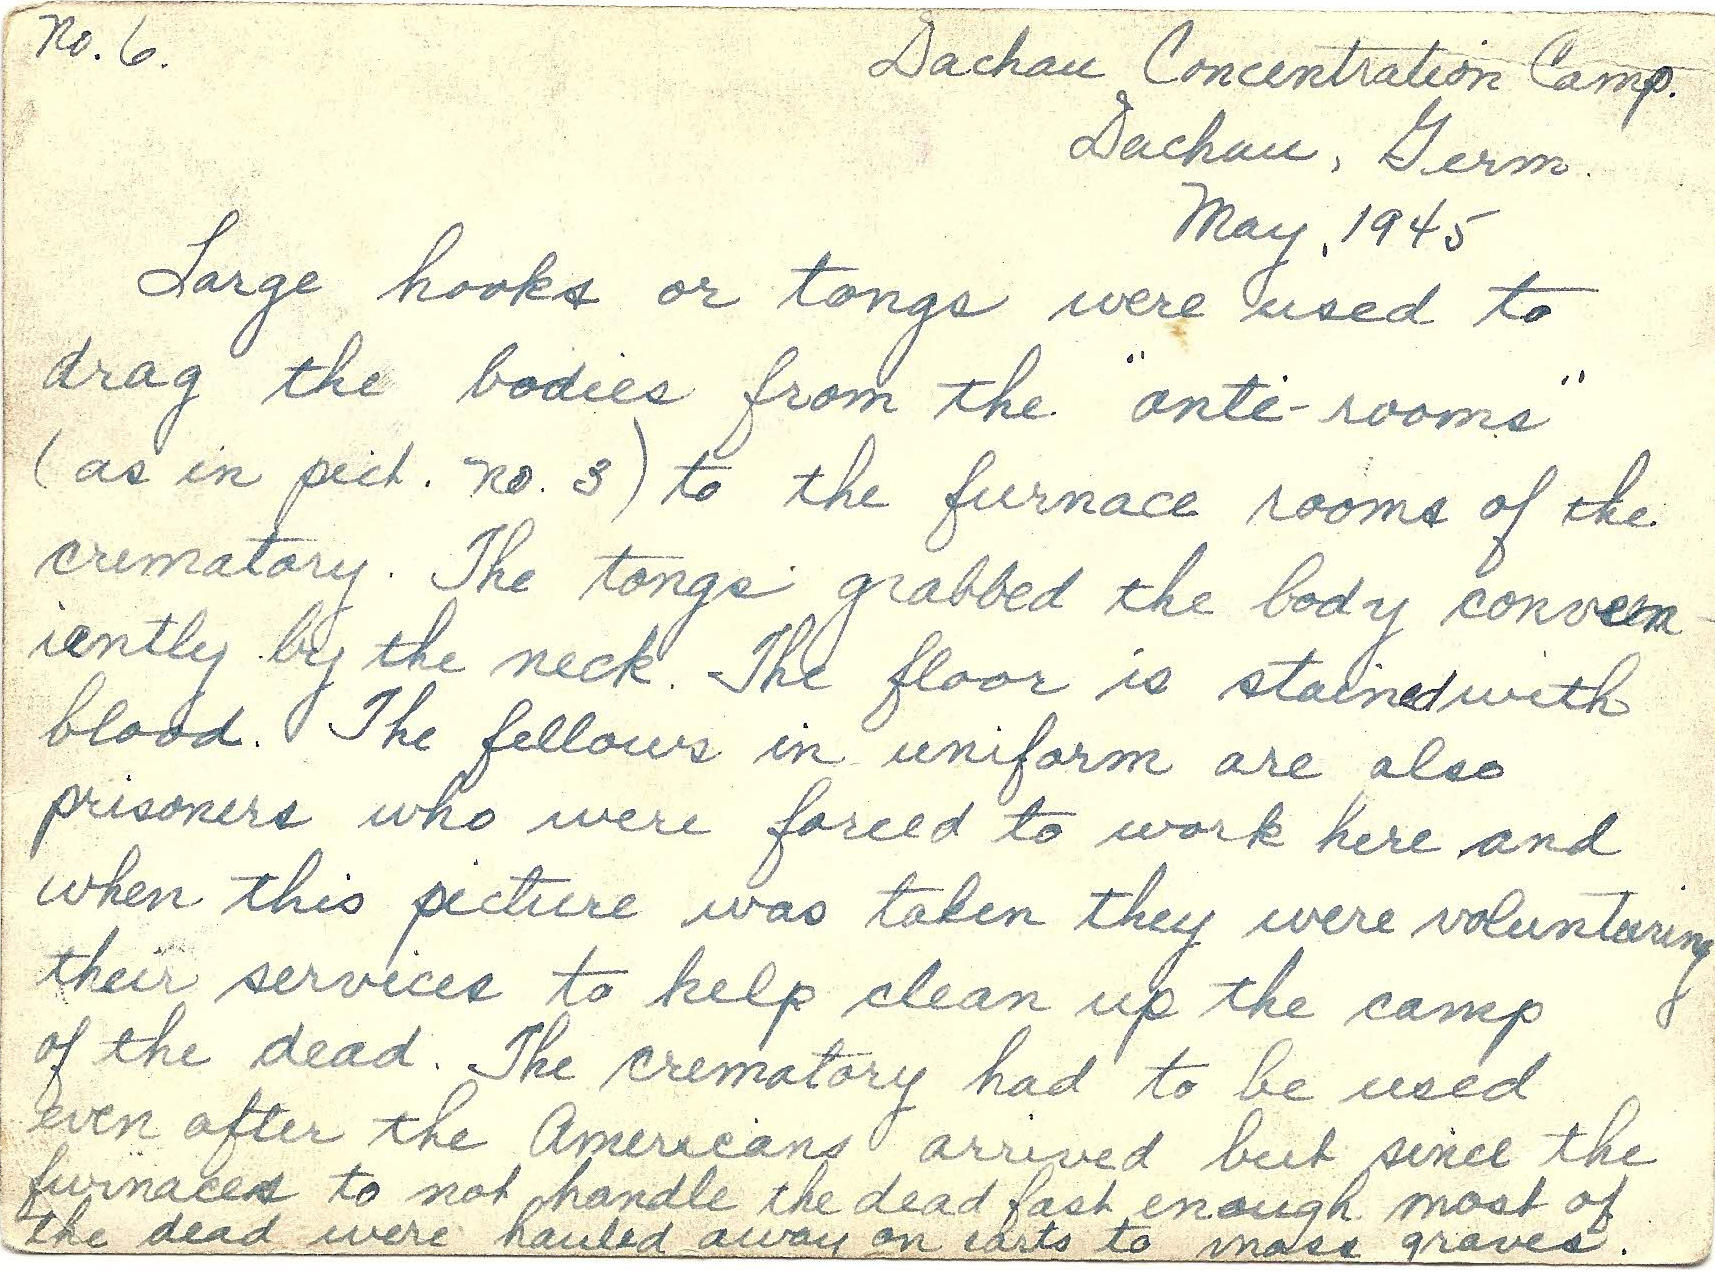 No. 6.
Dachau Concentration Camp.
Dachau, Germ.
May, 1945
Large hooks or tongs were used to
drag the bodies from the "anti-rooms"
(as in pict. No. 3) to the furnace rooms of the
crematory. The tongs grabbed the body conven-
iently by the neck. The floor is stained with
blood. The fellows in uniform are also
prisoners who were forced to work here and
when this picture was taken they were voluntering
their services to help clean up the camp
of the dead. The crematory had to be used
even after the Americans arrived but since the
furnaces to not handle the dead fast enough most of
the dead were hauled away on carts to mass graves.